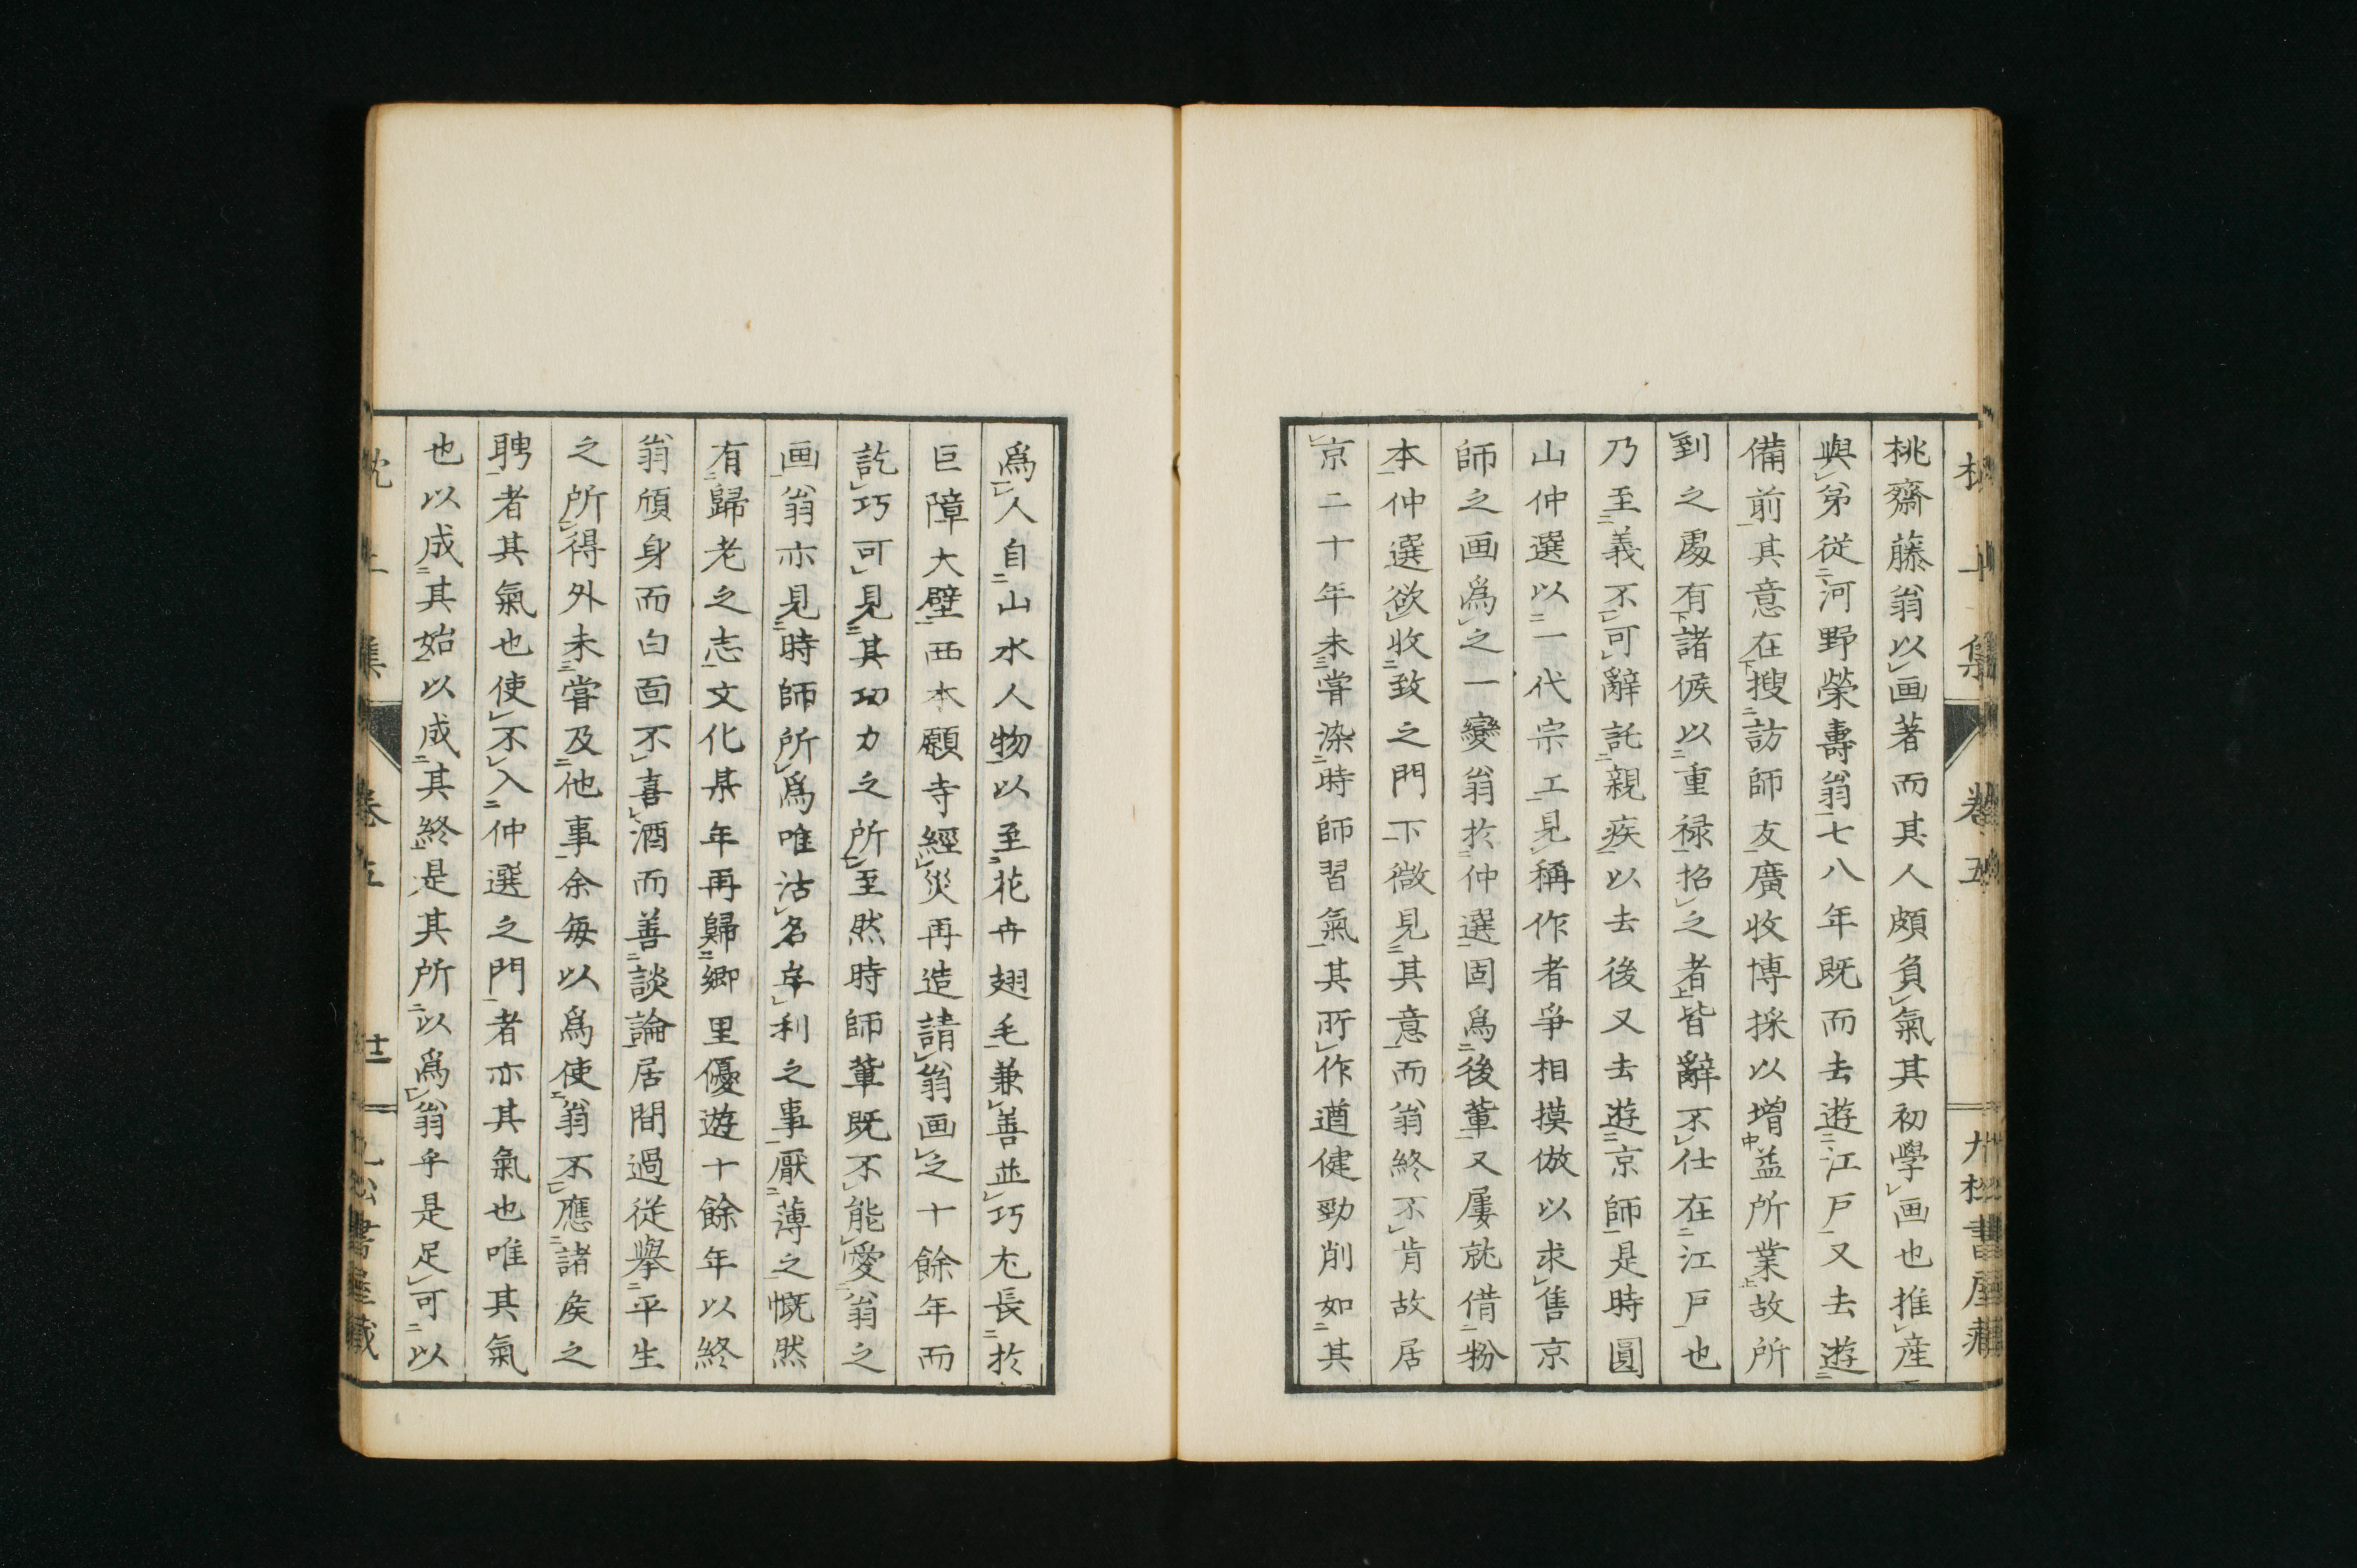 桃齋藤翁以画著而其人頗負氣其初學画也推産
與弟従河野榮壽翁七八年既而去遊江戸又去遊
備前其意在搜訪師友廣收博採以増益所業故所
到之處有諸侯以重禄招之者皆辭不仕在江戸也
乃至義不可辭託親疾以去後又去遊京師是時圓
山仲選以一代宗工見稱作者爭相摸倣以求售京
師之画爲之一變翁於仲選固爲後輩又屢就借粉
本仲選欲收致之門下微見其意而翁終不肯故居
京二十年未甞染時師習氣其所作遒健勁削如其
爲人自山水人物以至花卉翅毛兼善並巧尤長於
巨障大壁西本願寺經災再造請翁画之十餘年而
訖巧可見其功力之所至然時師輩既不能愛翁之
画翁亦見時師所爲唯沽名牟利之事厭薄之慨然
有歸老之志文化某年再歸郷里優遊十餘年以終
翁頎身而白面不喜酒而善談論居間過従擧平生
之所得外未甞及他事余毎以爲使翁不應諸矦之
聘者其氣也使不入仲選之門者亦其氣也唯其氣
也以成其始以成其終是其所以爲翁乎是足可以
集 卷五
書屋藏